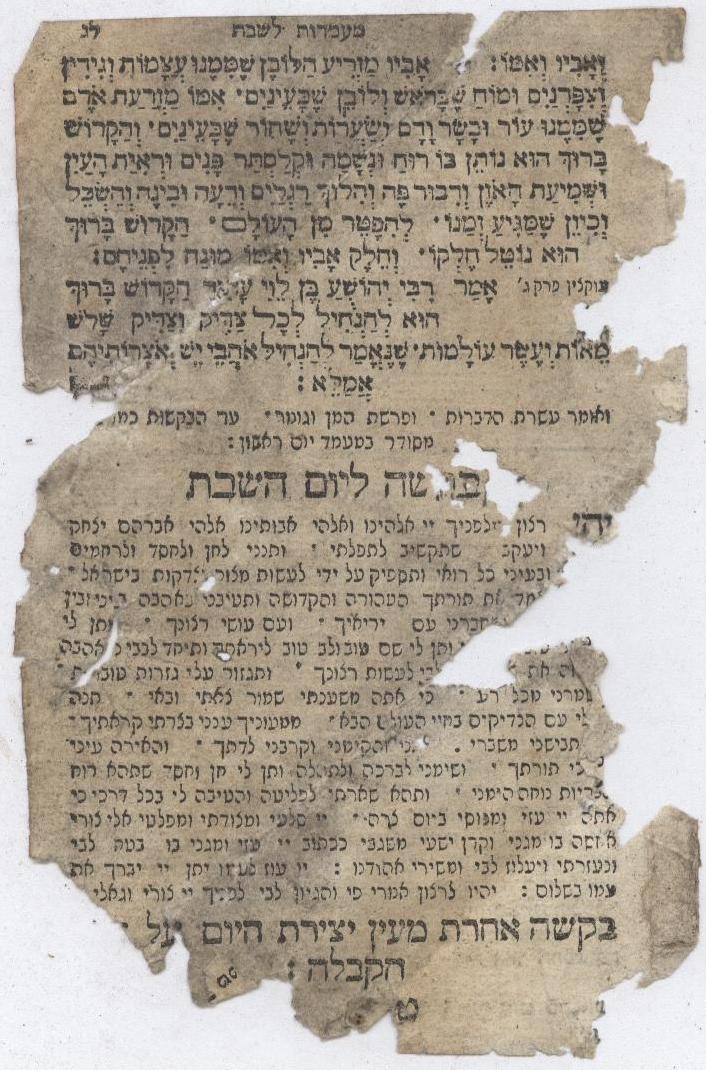 מעמדות לשבת
לג
וְאָבִיו וְאִמּוֹ: אָבִיו מַזְרִיעַ הַלּוֹבֶן שֶׁמִּמֶּנּוּ עֲצָמוֹת וְגִידִין
וְצִפָּרְנַיִם וּמוֹחַ שֶׁבָּרֹאשׁ וְלוֹבֶן שֶׁבָּעֵינַיִם׳ אִמּוֹ מַזְרַעַת אֹדֶם
שֶׁמִּמֶּנּוּ עוֹר וּבָשָׂר וָדָם וּשְׂעָרוֹת וְשָׁחוֹר שֶׁבָּעֵינַיִם׳ וְהַקָּדוֹשׁ
בָּרוּךְ הוּא נוֹתֵן בּוֹ רוּחַ וּנְשָׁמָה וּקְלַסְתַּר פָּנִים וּרְאִיַּת הָעַיִן
וּשְׁמִיעַת הָאֹזֶן וְדִבּוּר פֶּה וְהִלּוּךְ רַגְלַיִם וְדֵעָה וּבִינָה וְהַשְׂכֵּל
וְכֵיוָן שֶׁמַּגִּיעַ זְמַנּוֹ׳ לְהִפָּטֵר מִן הָעוֹלָם׳ הַקָּדוֹשׁ בָּרוּךְ
הוּא נוֹטֵל חֶלְקוֹ׳ וְחֵלֶק אָבִיו וְאִמּוֹ מוּנָח לִפְנֵיהֶם:
עוקצין פרק ג׳ אָמַר רַבִּי יְהוֹשֻׁעַ בֶּן לֵוִי עָתִיד הַקָּדוֹשׁ בָּרוּךְ
הוּא לְהַנְחִיל לְכָל צַדִּיק וְצַדִּיק שָׁלֹשׁ
מֵאוֹת וְעֶשֶׂר עוֹלָמוֹת׳ שֶׁנֶּאֱמַר לְהַנְחִיל אֹהֲבַי יֵשׁ וְאֹצְרוֹתֵיהֶם
אֲמַלֵּא:
ואומר עשרת הדברות׳ ופרשת המן וגומר׳ עד הבקשות
מסודר במעמד יום ראשון:
בקשה ליום השבת
יהי רצון מלפניך יי אלהינו ואלהי אבותינו אלהי אברהם יצחק
ויעקב שתקשיב לתפלתי׳ ותנני לחן ולחסד ולרחמים
ובעיני כל רואי ותספיק על ידי לעשות מצות וצדקות בישראל׳
את תורתך הטהורה והקדושה
עם יריאיך׳ ועם עושי רצונך׳ ותן לי
ותן לי שם טוב ולב טוב ליראתך ותיחד לבבי לאהבה
לבי לעשות רצונך׳ ותגזור עלי גזרות טובות
מכל רע׳ כי אתה משענתי שמור צאתי ובאי׳ תנה
לי עם הצדיקים בחיי העולם הבא׳ ממעוניך ענני בצרתי קראתיך׳
תבישני משברי. והקימני וקרבני לדתך׳ והאירה עיני
תורתך׳ ושימני לברכה ולתהלה ותן לי חן וחסד שתהא רוח
הבריות נוחה הימני׳ ותהא שארתי לפליטה והטיבה לי בכל דרכי כי
אתה יי עזי ומנוסי ביום צרה׳ יי סלעי ומצודתי ומפלטי אלי צורי
אחסה בו מגני וקרן ישעי משגבי ככתוב יי עזי ומגני בו בטח לבי
ונעזרתי ויעלוז לבי ומשירי אהודנו: יי עוז לעמו יתן יי יברך את
עמו בשלום: יהיו לרצון אמרי פי והגיון לבי לפניך יי צורי וגואלי
בקשה אחרת מעין יצירת היום על
הקבלה:
ט